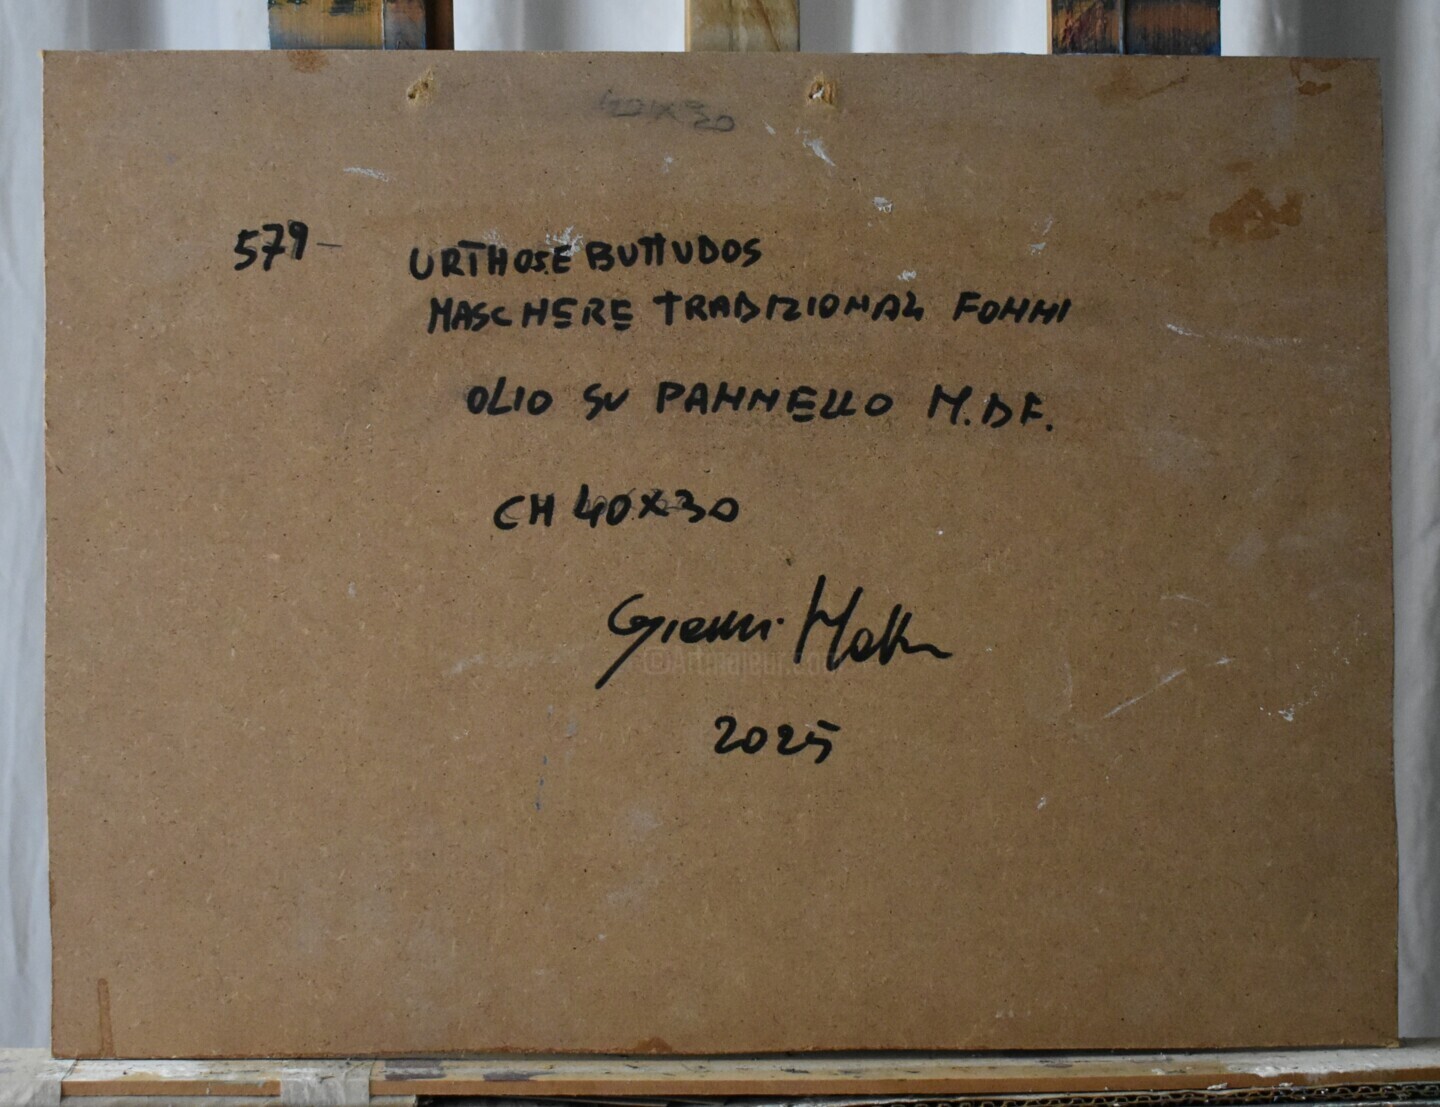 40X30
579- URTHOS E BUTTUDOS
MASCHERE TRADIZIONALI FONNI
OLIO SU PANNELLO M.DF.
CM 40X30
Gianni
©Artmajeur.com
2025